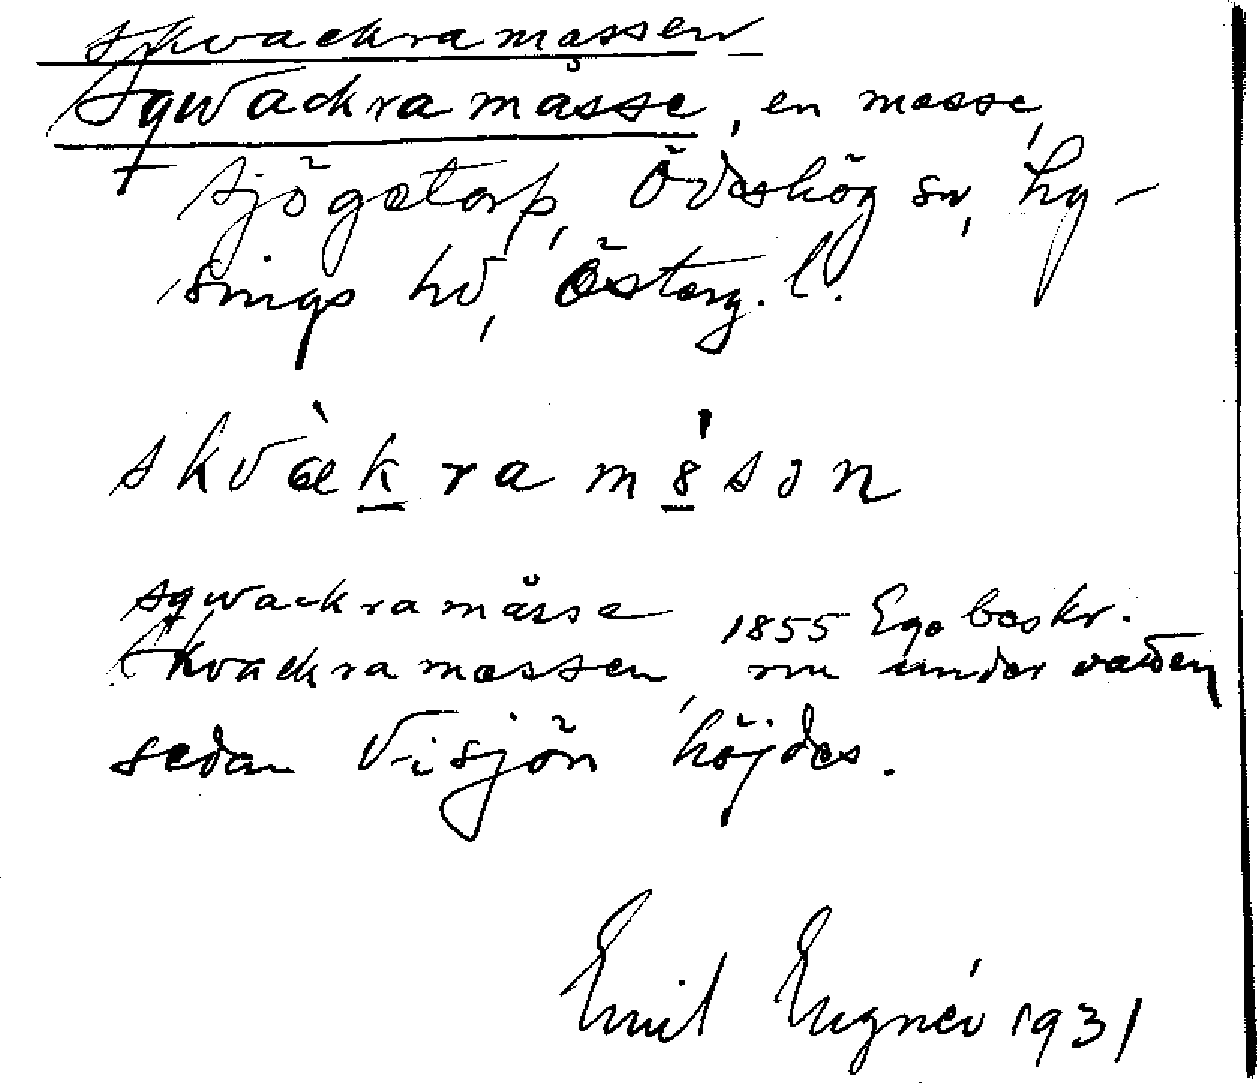 Skvackramossen
Sqwackramåsse, en mosse,
Sjögetorp, Ödeshög sn, Ly-
sings hd, Österg. l.
skvækramsson
Sqwackramåsse 1855 Egobeskr.
Skvackramossen, nu under vatten
sedan Visjön höjdes.
Emil Eugnér 1931